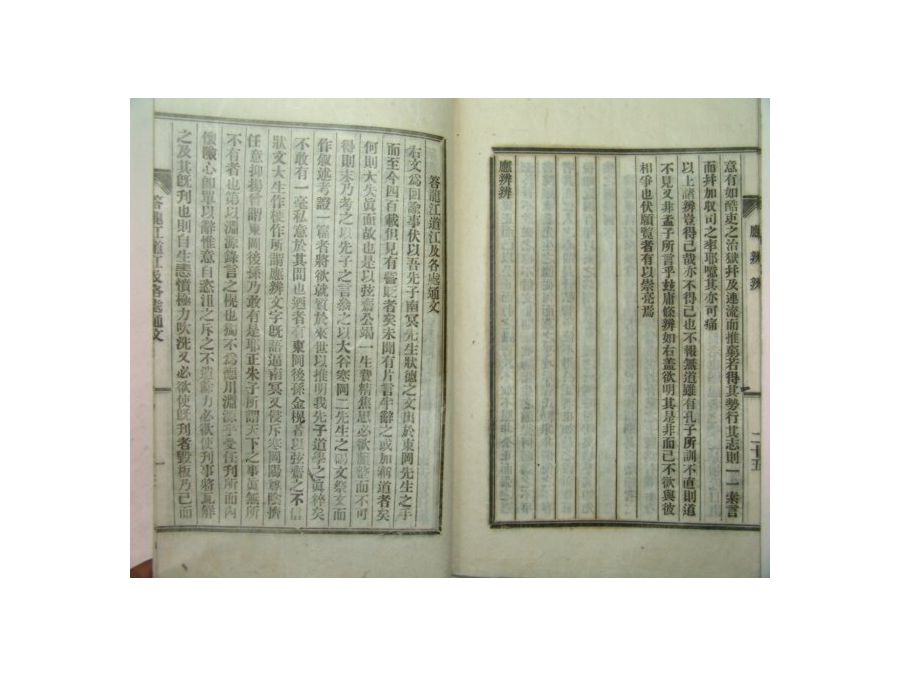 意有如酷吏之治獄幷及連流而推窮若得其勢行其志則一一案言
而幷加収司之率耶噫其亦可痛
以上諸辨豈得已哉亦不得已也不報無道雖有孔子所訓不直則道
不見又非孟子所言乎玆庸條辨如右盖欲明其是非而已不欲與彼
相爭也伏願覽者有以崇亮焉
應辨辨
應辨辨
二十五
答龍江道江及各處通文
右文爲回諭事伏以吾先子南冥先生狀德之文出於東岡先生之手
而至今四百載但見有 者矣未聞有片言半辭之或加 道者矣
何則大失眞面故也是以弦齋公竭一生費精焦思必欲 而不可
得則末乃考之以先子之言 之以大谷寒岡二先生之碣文祭文而
作叙述考證一 者將欲就質於來世以推明我先子道學之眞粹矣
不敢有一毫私意於其間也 者有東岡後孫金 者以弦齋之不信
狀文大生作 作所謂應辨文字旣語逼南冥又侵斥寒岡陽尊陰擠
任意抑揚曾謂東岡後孫乃敢有是耶正朱子所謂天下之事眞無所
不有者也第以淵源錄言之 也獨不爲德川淵源 受任刋所而內
懷 心 單以辭惟意自恣詛之斥之不遺餘力必欲使刋事將瓦解
之及其旣刋也則自生悲憤極力吹洗又必欲使旣刋者毀板乃已而
答龍江道江及各處通文
一